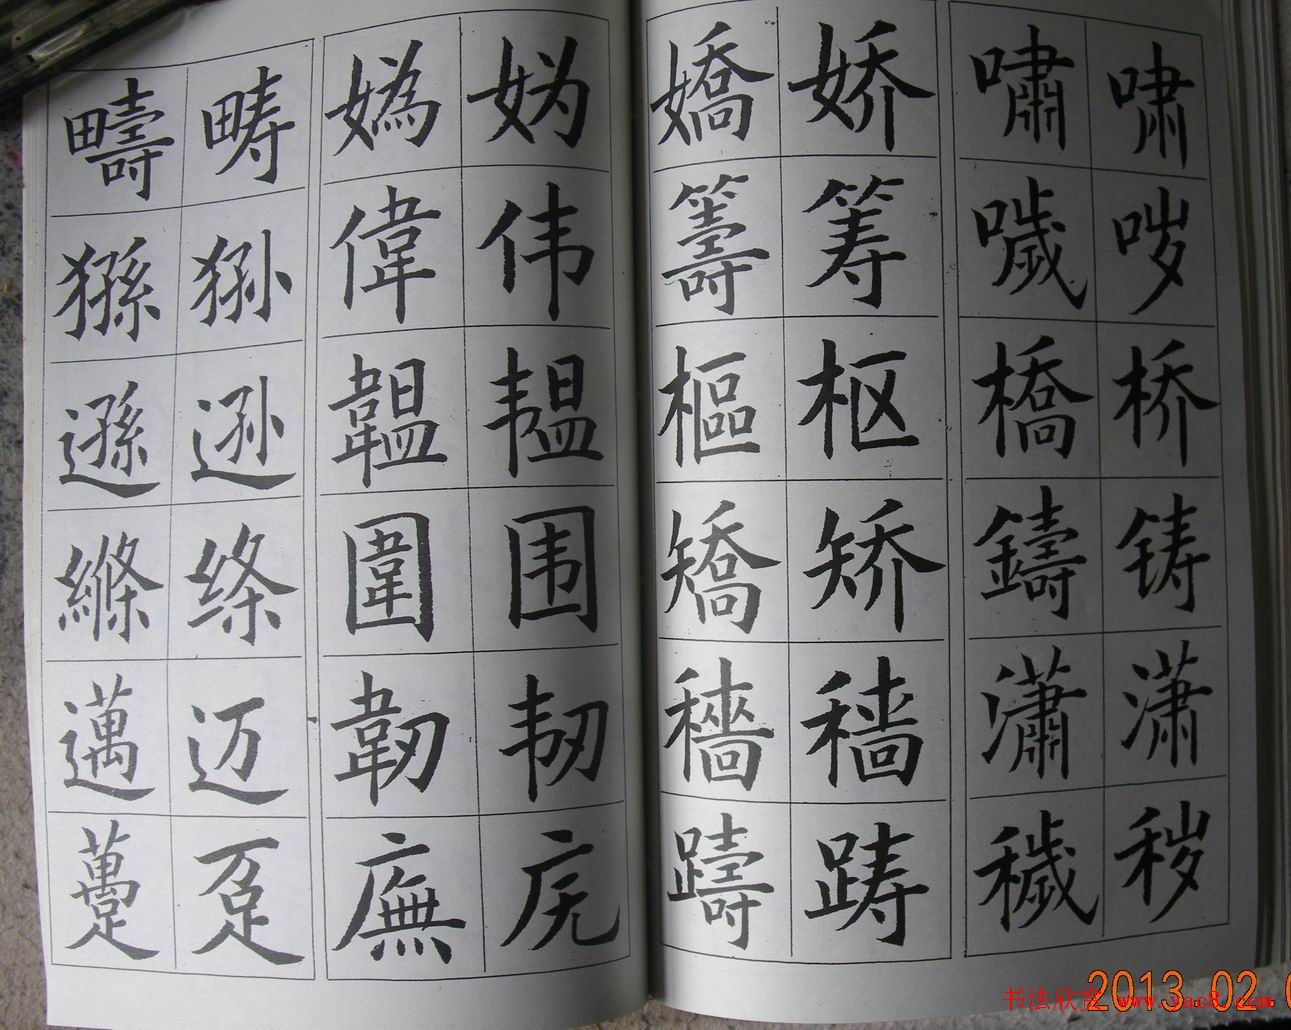 疇 畴 嬀 妫 嬌 娇 嘯 啸
猻 狲 偉 伟 籌 筹 噦 哕
遜 逊 韞 韫 樞 枢 橋 桥
縧 绦 圍 围 矯 矫 鑄 铸
邁 迈 韌 韧 穡 穑 瀟 潇
躉 趸 廡 庑 躊 踌 穢 秽
2013.02.0
书法欣赏 www.yac8.com